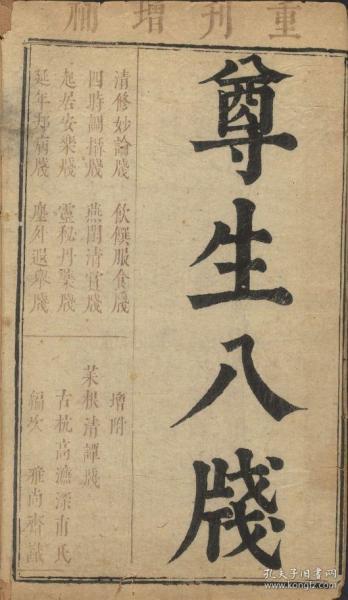 重刊增補
尊生八牋
清修妙論牋 飲饌服食牋
四時調攝牋 燕閒清賞牋
起居安樂牋 靈秘丹藥牋
延年却病牋 塵外遐舉牋
增附
菜根清譚牋
古杭高濂深甫氏
編次 雅尚齋藏
孔夫子旧书网
www.kongfz.com